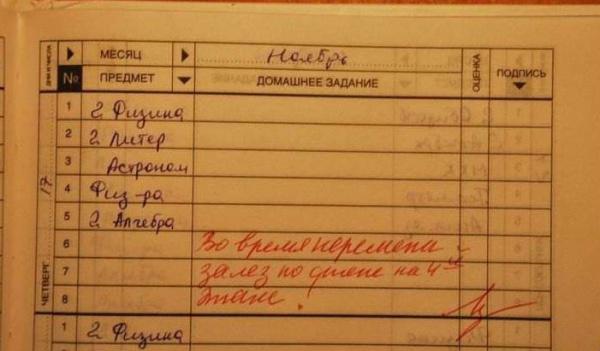 ДНИ И ЧИСЛА МЕСЯЦ Ноябрь ОЦЕНКА ПОДПИСЬ
№ ПРЕДМЕТ ДОМАШНЕЕ ЗАДАНИЕ
1 2 Физика
2 2 Литер
3 Астроном
4 Физ-ра
17
5 2 Алгебра
6 Во время перемены
7 залез по стене на 4ый
ЧЕТВЕРГ
8 этаж!
1 2 Физика